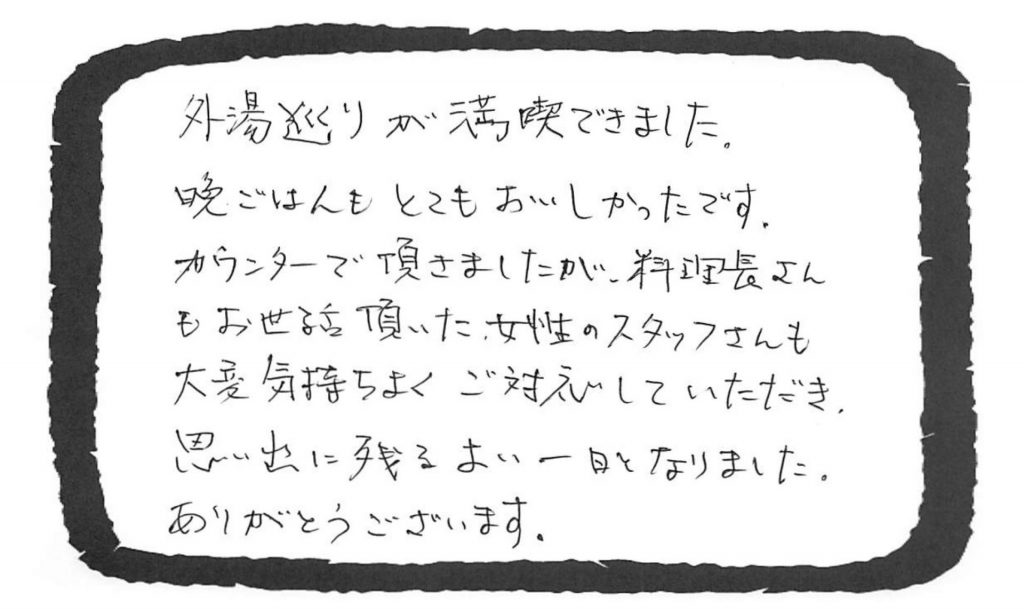 外湯巡りが満喫できました。
晩ごはんもとてもおいしかったです。
カウンターで頂きましたが、料理長さん
もお世話頂いた、女性のスタッフさんも
大変気持ちよくご対応していただき、
思い出に残るよい一日となりました。
ありがとうございます。